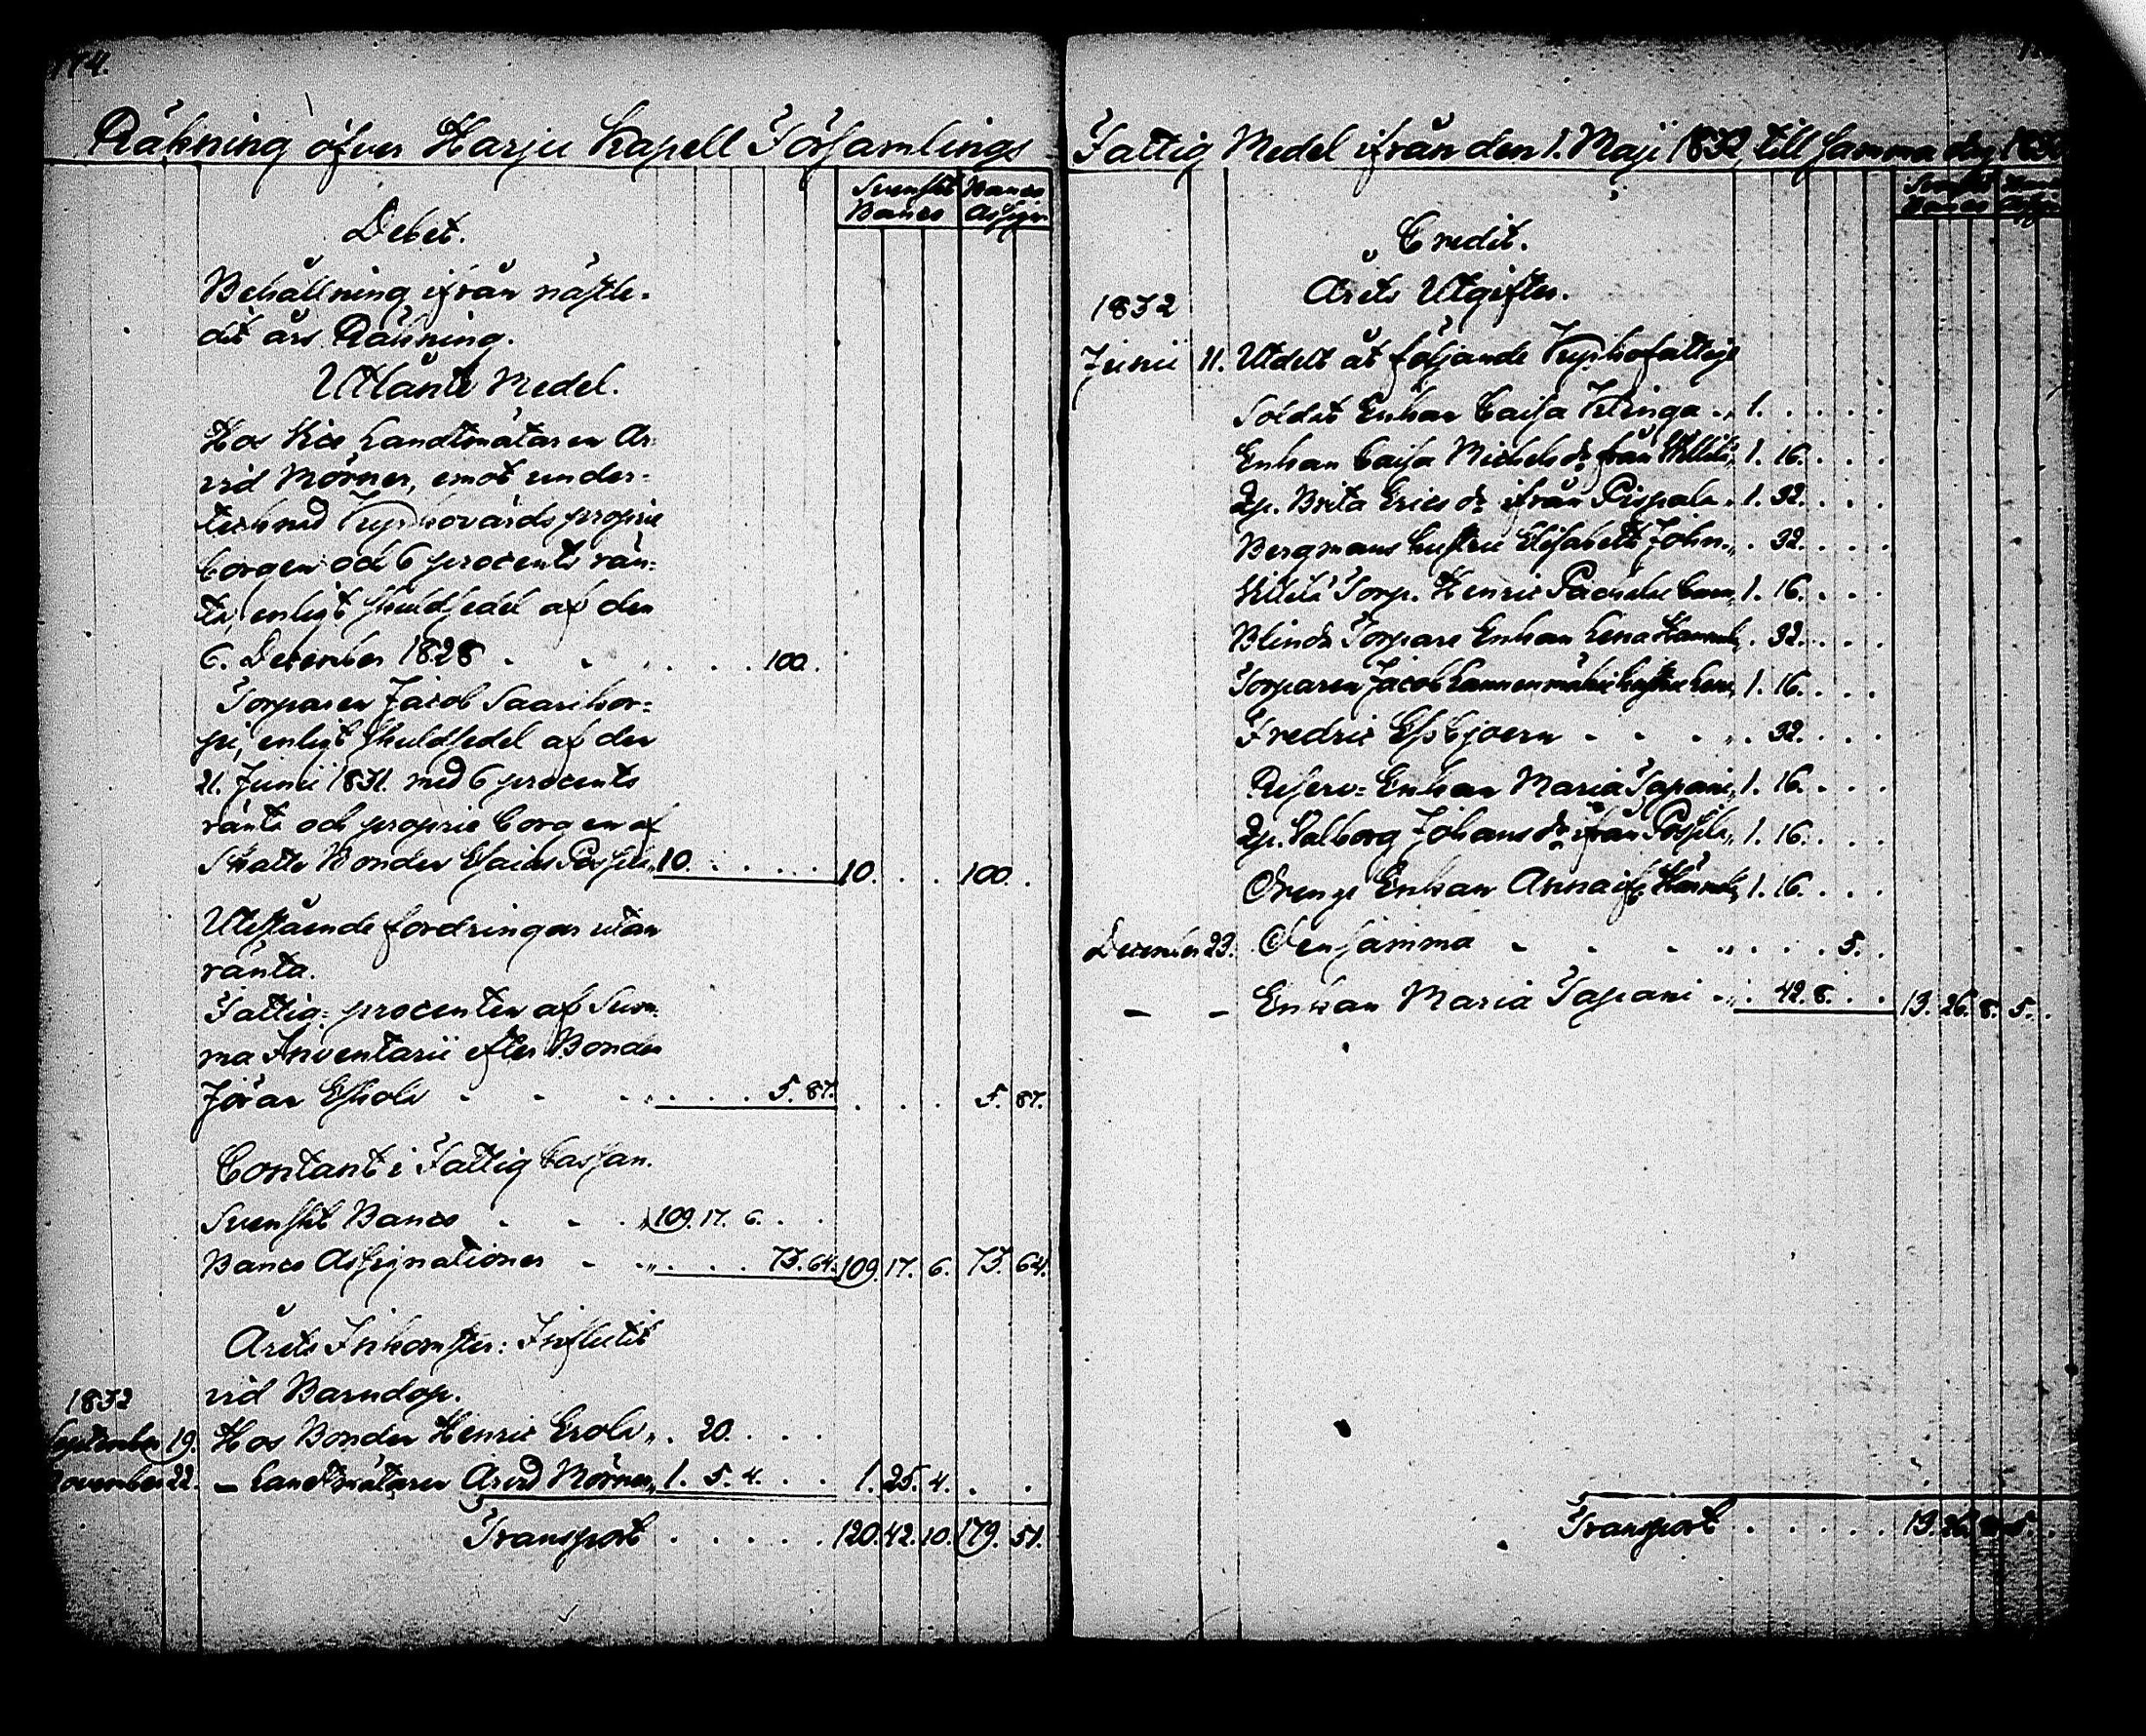 174.
Räkning öfver Harju Kapell Församlings
Svenskt Banco
Banco Assign
Debet.
Behållning ifrån nästle-
dit års Räkning.
Utlånte Medel.
Hos Vice Landtmätaren Ar-
vid Mörner, emot under-
tecknad Kyrkovärds proprie
borgen och 6 procents rän-
ta, enligt skuldsedel af den
6. December 1828 . . . . . 100.
Torparen Jacob Saarikor-
pi, enligt skuldsedel af den
21. Junii 1831. med 6 procents
ränta och proprie borgen af
Skatte Bonden Esaias 10. . . . . . 10. . . 100. .
Utestående fordringar utan
ränta.
Fattig-procenten af Sum-
ma Inventarii efter Bonden
Jöran Eskola . . . . . . 5. 87. . . . 5. 87.
Contant i Fattig Cassan.
Svenskt Banco . . . 109. 17. 6. . .
Banco Assignationer . . . . . 73. 64. 109. 17. 6. 73. 64.
Årets Inkomster: Influtit
1832 vid Barndop.
September 19. Hos Bonden Henric Erola . 20. . . .
November 22. — Landtmätaren Arvid Mörner 1. 5. 4. . . 1. 25. 4. . .
Transport . . . . . 120. 42. 10. 179. 51.
Fattig Medel ifrån den 1. Maji 1832, till samma dag
Svenskt Banco
Credit.
1832 Årets Utgifter.
Junii 11. Utdelt åt följande Kyrkofattige
Soldat Enkan Caisa 1. . . . . .
Enkan Caisa Michelsdr från 1. 16. . . .
Qp. Brita Ericsdr ifrån Pispala 1. 32. . . .
Bergmans hustru Elisabeth Joh . 32. . . .
Torp. Henric 1. 16. . . .
Blinda Torpare Enkan Lena . 32. . . .
Torparen Jacob hustru 1. 16. . . .
Fredric . . . . 32. . . .
Reserv- Enkan Maria Tapani 1. 16. . . .
Qp. Valborg Johansdr ifrån 1. 16. . . .
Drenge Enkan 1. 16. . . .
December 23. Densamma . . . . . . . 5. .
— — Enkan Maria Tapani . . 42. 8. . . 13. 26. 8. 5. .
Transport . . . . . 13. 26. 8. 5. .